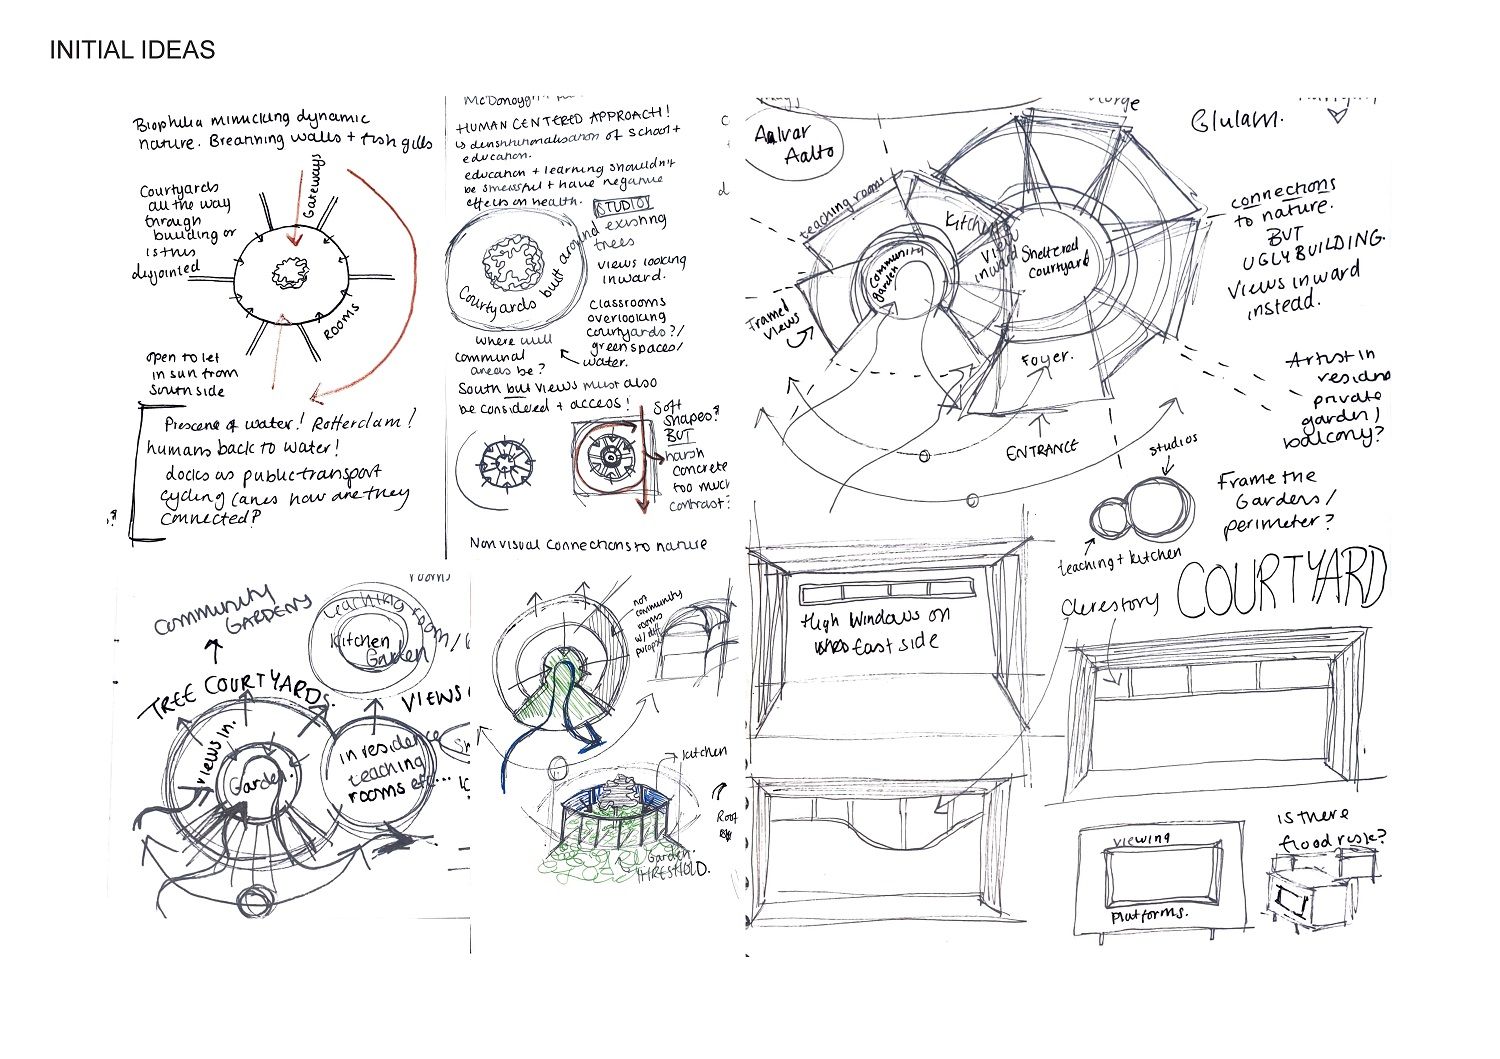 INITIAL IDEAS
Biophilia mimicking dynamic
nature. Breathing walls + fish gills
Courtyards
all the way
through
building or
is this
disjointed
Gateways
ROOMS
open to let
in sun from
South side
Prescene of water! Rotterdam!
humans back to water!
docks as public transport
cycling lanes how are they
connected?
HUMAN CENTERED APPROACH!
education.
education + learning shouldn't
be stressful + have negative
effects on health.
STUDIO
Courtyards built around existing
trees
views looking
inward.
classrooms
overlooking
courtyards?/
green spaces/
water.
where will
communal
areas be?
South but views must also
be considered + access!
Soft
shapes?
BUT
harsh
concrete
too much
contrast?
Non visual connections to nature
COMMUNITY
GARDENS
teaching room/
Kitchen
Garden
TREE COURTYARDS.
VIEWS
views in.
Garden.
in residence
teaching
rooms etc...
not
community
rooms
w/ diff
purpose
kitchen
Garden.
THRESHOLD.
Roof
Aalvar
Aalto
Glulam.
teaching rooms
Kitchen
view
inward
Sheltered
courtyard
community
garden
Framed
views
Foyer.
ENTRANCE
connections
to nature.
BUT
UGLY BUILDING.
views inward
instead.
Artist in
private
garden/
balcony?
studios
teaching + kitchen
Frame the
Gardens/
perimeter?
COURTYARD
clerestory
High Windows on
east side
viewing
platforms.
is there
flood risk?